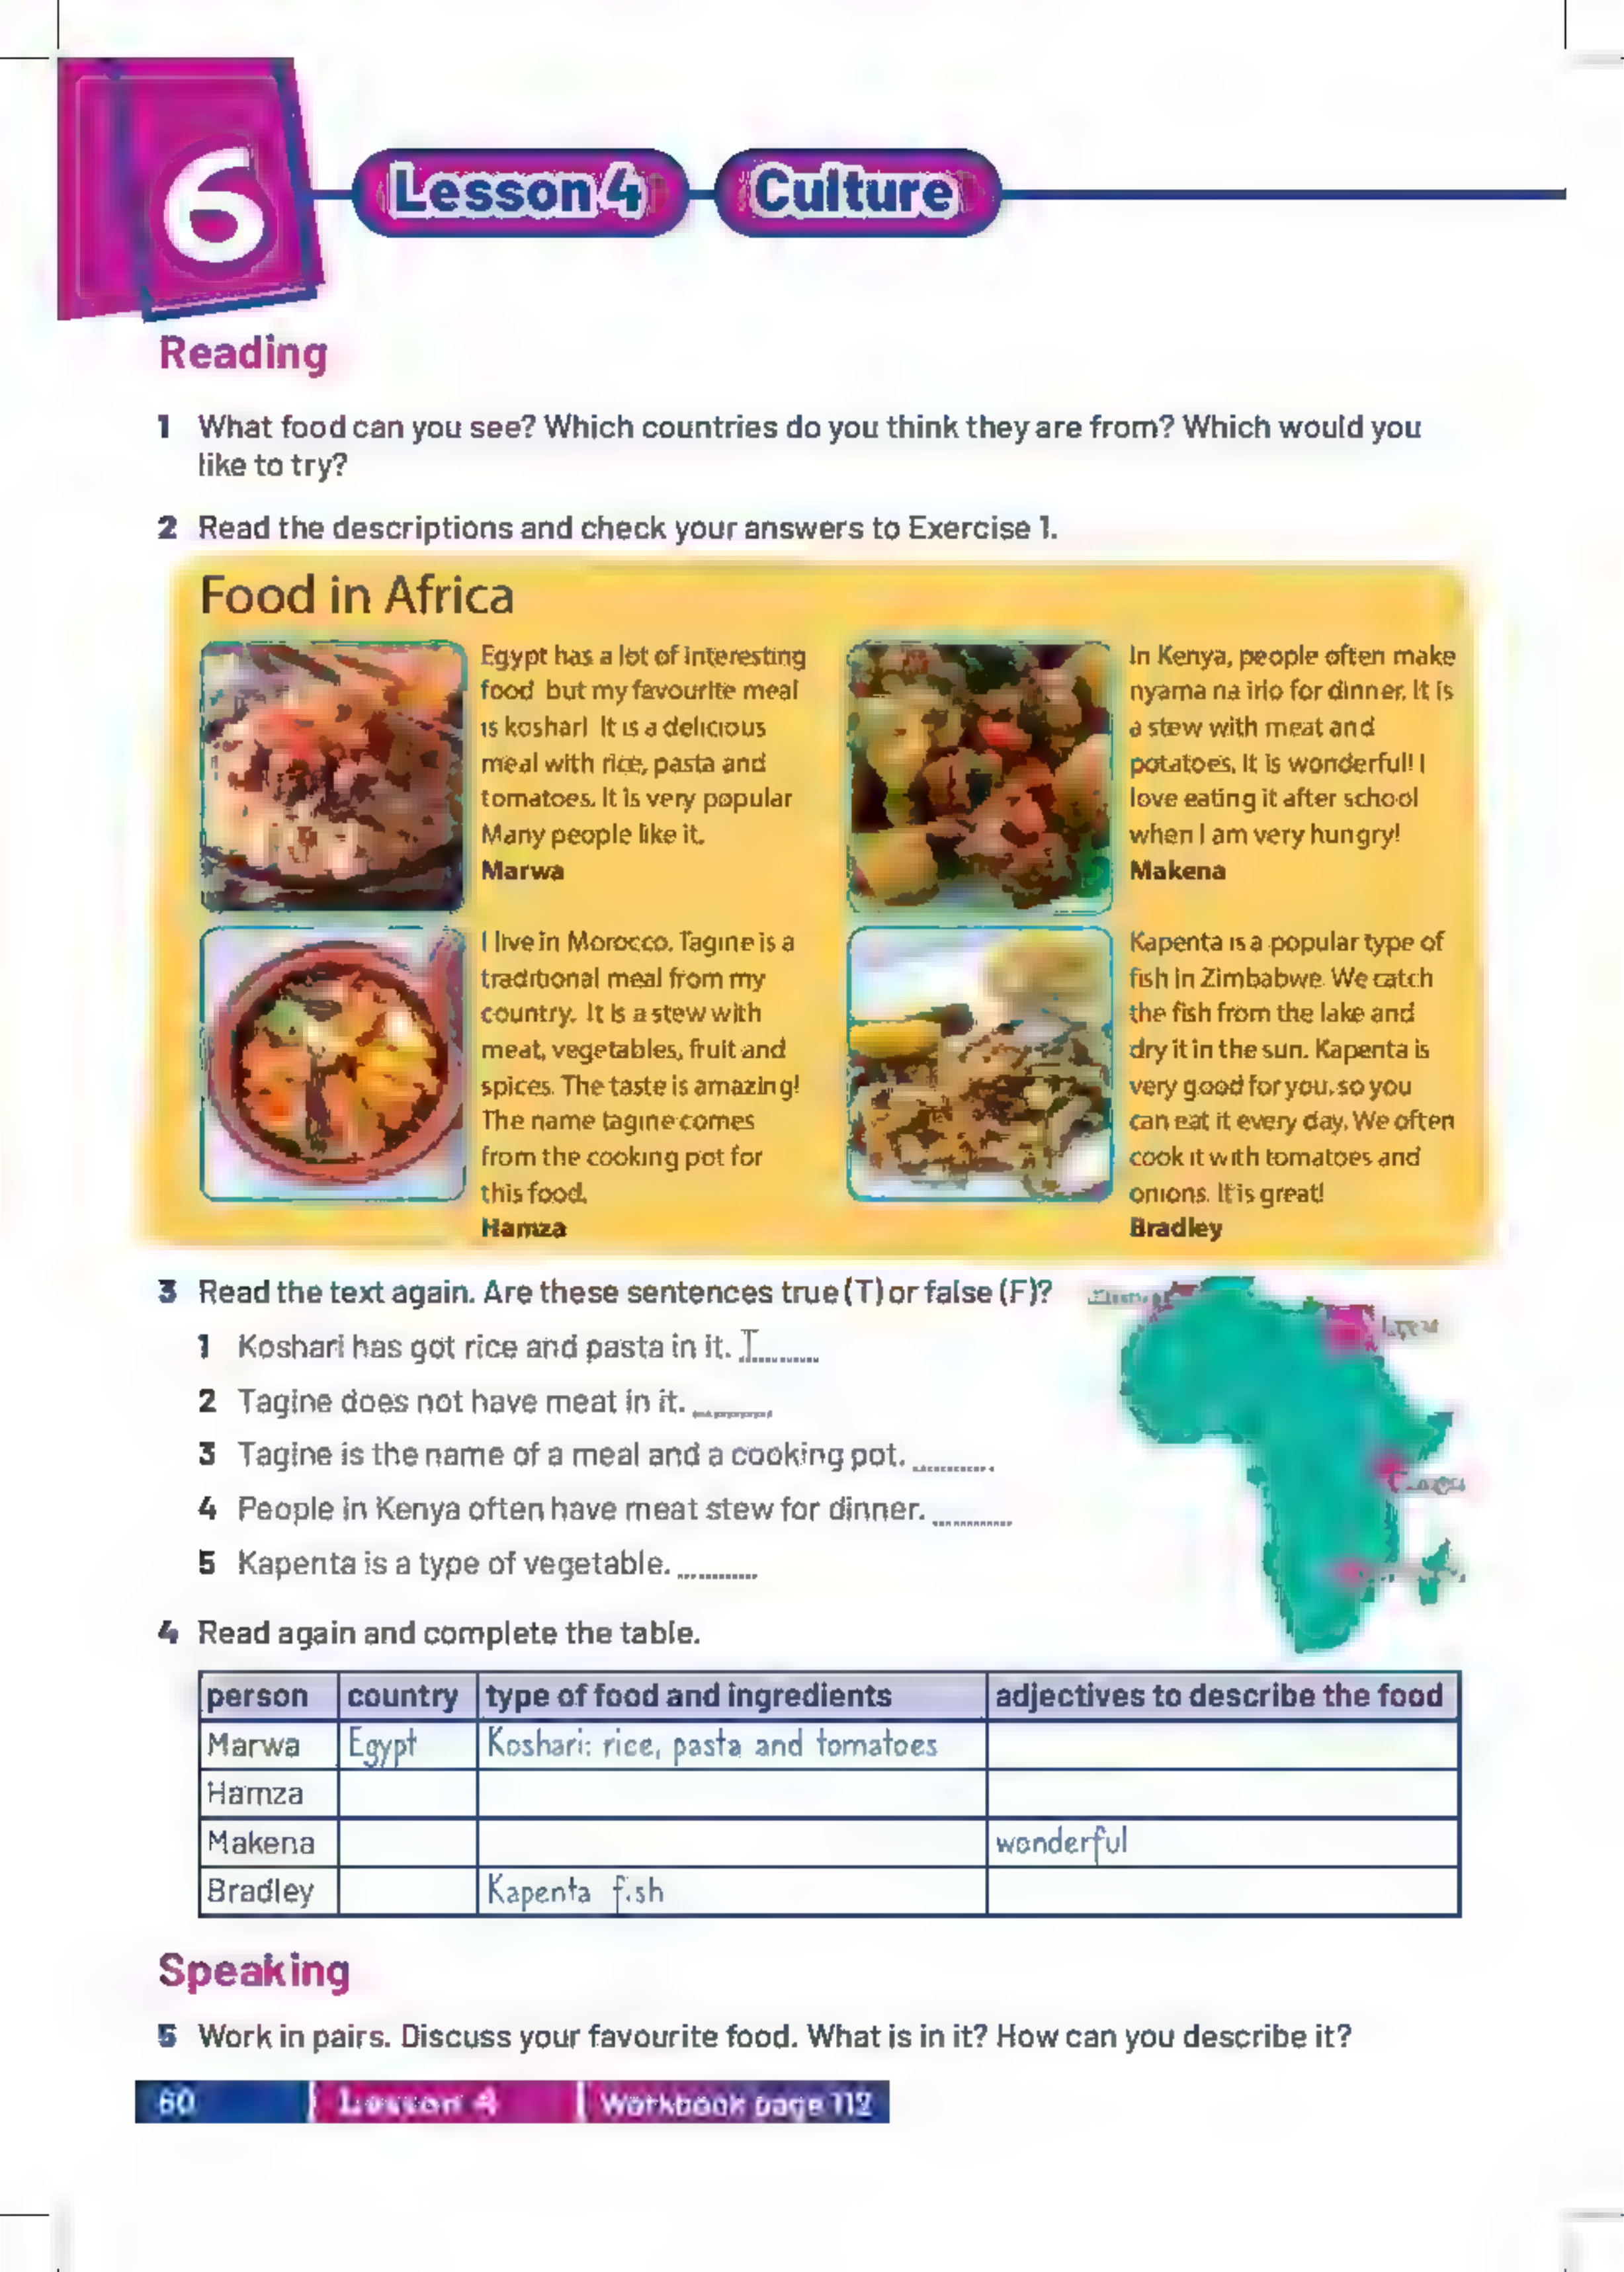 6
Lesson 4 Culture
Reading
1 What food can you see? Which countries do you think they are from? Which would you
like to try?
2 Read the descriptions and check your answers to Exercise 1.
Food in Africa
Egypt has a lot of interesting
food but my favourite meal
is koshari It is a delicious
meal with rice, pasta and
tomatoes. It is very popular
Many people like it.
Marwa
In Kenya, people often make
nyama na irio for dinner. It is
a stew with meat and
potatoes. It is wonderful! I
love eating it after school
when I am very hungry!
Makena
I live in Morocco. Tagine is a
traditional meal from my
country. It is a stew with
meat, vegetables, fruit and
spices. The taste is amazing!
The name tagine comes
from the cooking pot for
this food.
Hamza
Kapenta is a popular type of
fish in Zimbabwe. We catch
the fish from the lake and
dry it in the sun. Kapenta is
very good for you, so you
can eat it every day. We often
cook it with tomatoes and
onions. It is great!
Bradley
3 Read the text again. Are these sentences true (T) or false (F)?
1 Koshari has got rice and pasta in it. T
2 Tagine does not have meat in it.
3 Tagine is the name of a meal and a cooking pot.
4 People in Kenya often have meat stew for dinner.
5 Kapenta is a type of vegetable.
4 Read again and complete the table.
person country type of food and ingredients adjectives to describe the food
Marwa Egypt Koshari: rice, pasta and tomatoes
Hamza
Makena wonderful
Bradley Kapenta fish
Speaking
5 Work in pairs. Discuss your favourite food. What is in it? How can you describe it?
60 Lesson 4 Workbook page 112